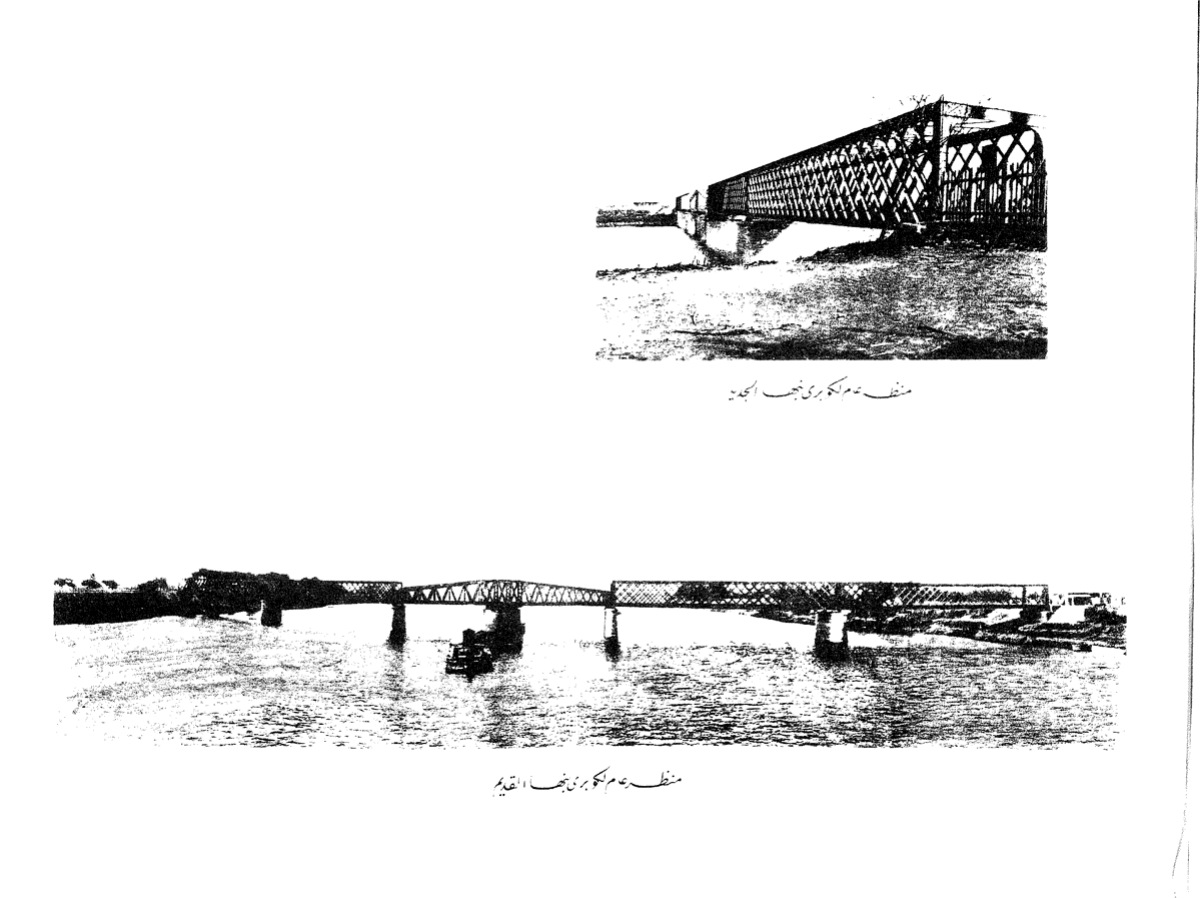 منظر عام لكوبرى بنها الجديد
منظر عام لكوبرى بنها القديم